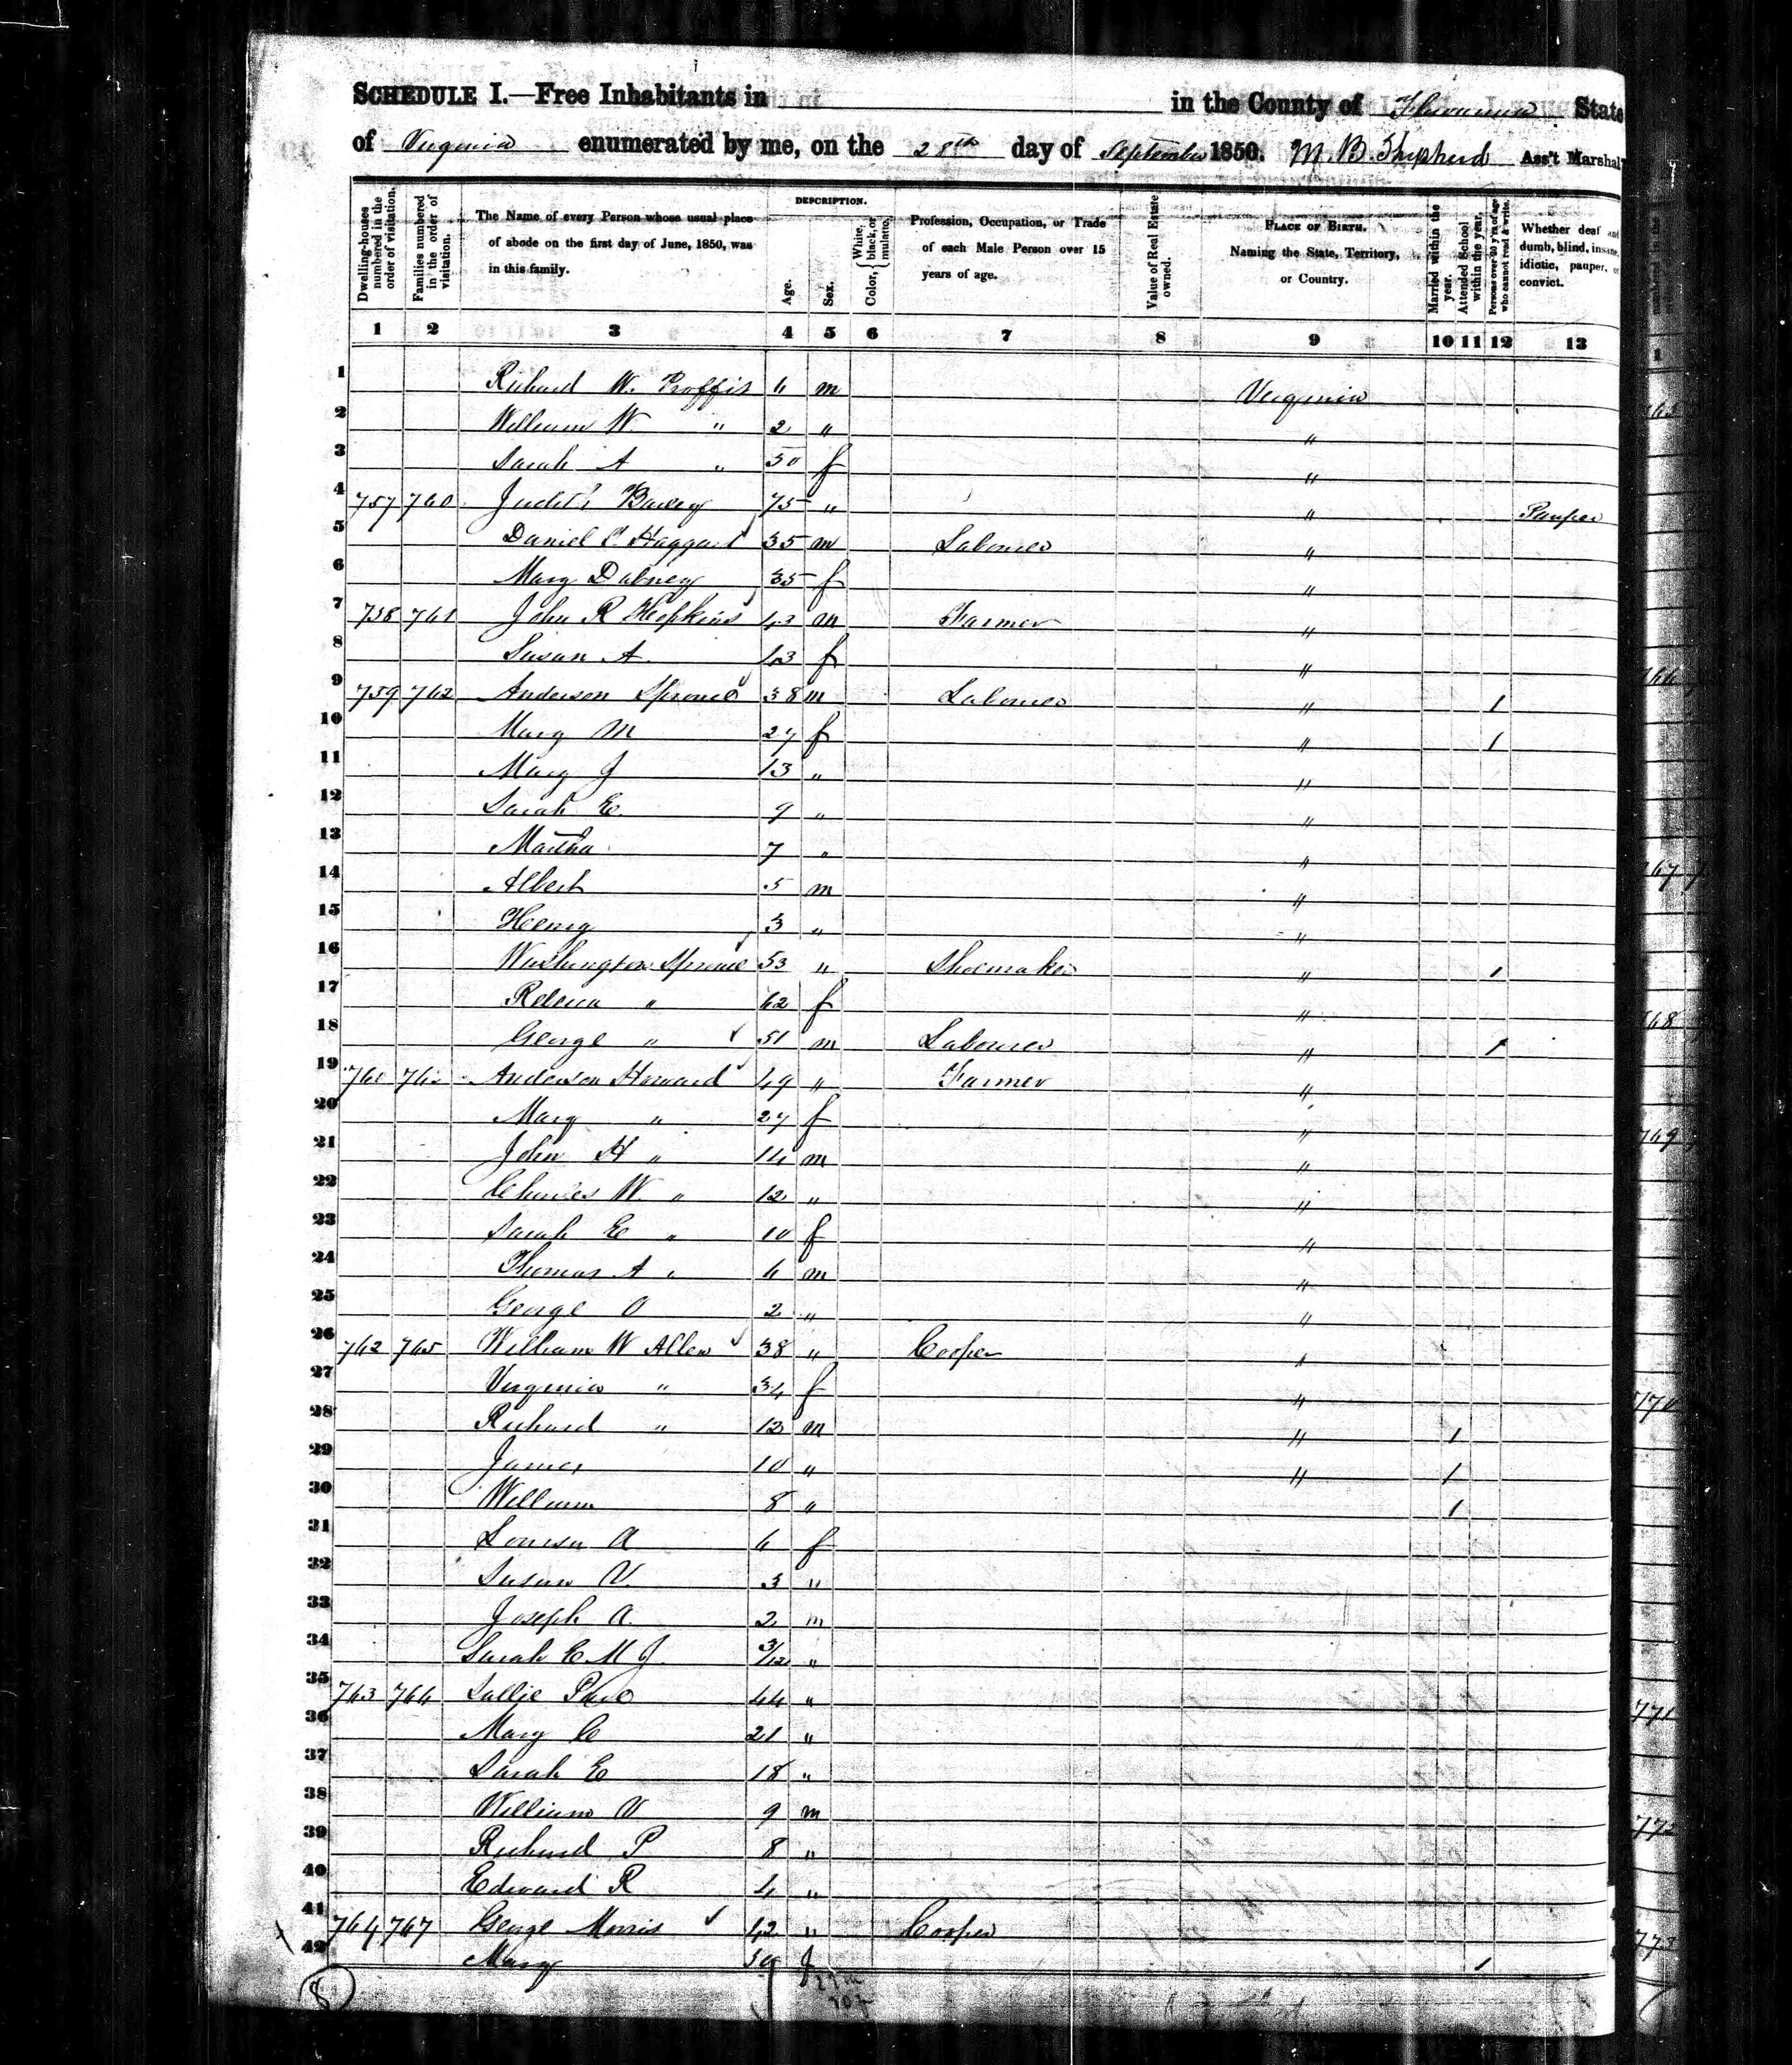 SCHEDULE I.—Free Inhabitants in in the County of Fluvanna State
of Virginia enumerated by me, on the 28th day of September 1850. M. B. Shepherd Ass't Marshal
Dwelling-houses numbered in the order of visitation.
Families numbered in the order of visitation.
The Name of every Person whose usual place of abode on the first day of June, 1850, was in this family.
DESCRIPTION.
Age.
Sex.
Color, White, black, or mulatto.
Profession, Occupation, or Trade of each Male Person over 15 years of age.
Value of Real Estate owned.
PLACE OF BIRTH. Naming the State, Territory, or Country.
Married within the year.
Attended School within the year.
Persons over 20 y'rs of age who cannot read & write.
Whether deaf and dumb, blind, insane, idiotic, pauper, or convict.
1 2 3 4 5 6 7 8 9 10 11 12 13
1 Richard W. Proffis 6 m Virginia
2 William W. " 2 " "
3 Sarah A " 50 f "
4 757 760 Judith Bailey 75 " " Pauper
5 Daniel Haggard 35 m Labourer "
6 Mary Dabney 35 f "
7 758 761 John R Hopkins 43 m Farmer "
8 Susan A. 43 f "
9 759 762 Anderson Sprouse 38 m Labourer " 1
10 Mary M 27 f " 1
11 Mary J 13 " "
12 Sarah E. 9 " "
13 Martha 7 " "
14 Albert 5 m "
15 Henry 3 " "
16 Washington Sprouse 53 " Shoemaker " 1
17 Rebecca " 62 f "
18 George " 51 m Labourer " 1
19 Anderson Howard 49 " Farmer "
20 Mary " 27 f "
21 John H " 14 m "
22 Charles W. " 12 " "
23 Sarah E " 10 f "
24 Thomas A " 6 m "
25 George O 2 " "
26 762 765 William W Allen 38 " Cooper "
27 Virginia " 34 f "
28 Richard " 12 m " 1
29 James 10 " " 1
30 William 8 " 1
31 Louisa A 6 f
32 Susan V. 3 "
33 Joseph A. 2 m
34 Sarah E M J. 3/12 "
35 763 766 Sallie 44 "
36 Mary C 21 "
37 Sarah E 18 "
38 William V 9 m
39 Richard P 8 "
40 Edward R 4 "
41 764 767 George Morris 42 " Cooper
42 Mary f 1
8